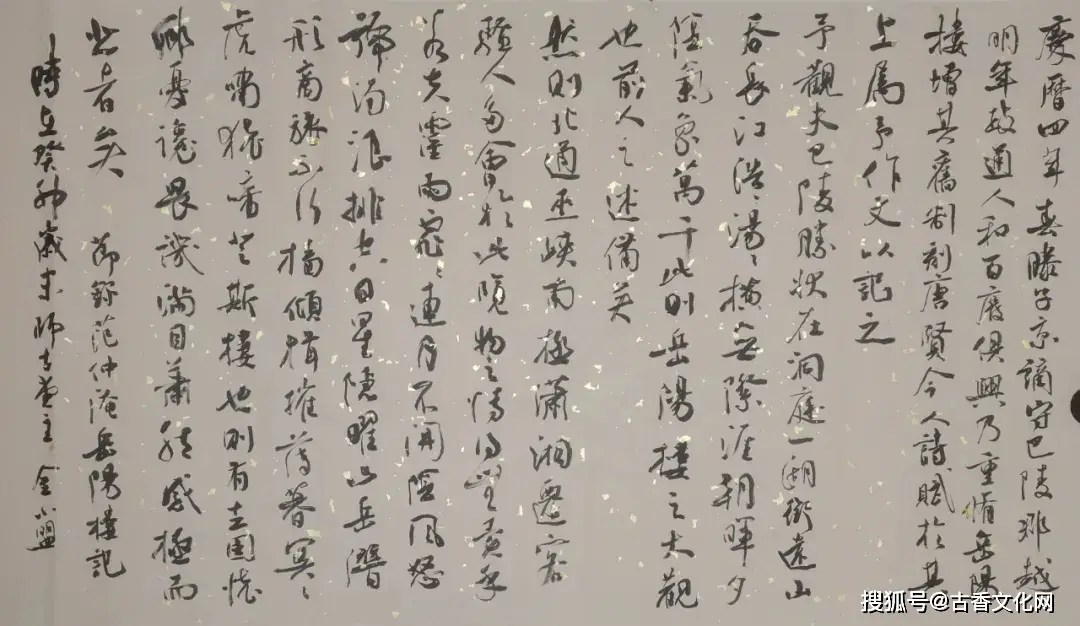 慶曆四年春滕子京謫守巴陵郡越
明年政通人和百廢俱興乃重脩岳陽
樓增其舊制刻唐賢今人詩賦於其
上属予作文以記之
予觀夫巴陵勝狀在洞庭一湖銜遠山
吞長江浩〻湯〻橫無際涯朝暉夕
陰氣象萬千此則岳陽樓之大觀
也前人之述備矣
然則北通巫峽南極瀟湘遷客
騷人多會於此覽物之情得無異乎
若夫霪雨霏〻連月不開陰風怒
號濁浪排空日星隱曜山岳潛
形商旅不行檣傾楫摧薄暮冥〻
虎嘯猿啼登斯樓也則有去國懷
鄉憂讒畏譏滿目蕭然感極而
悲者矣 節錄范仲淹岳陽樓記
時在癸卯歲末師古堂主金小盟
搜狐号@古香文化网